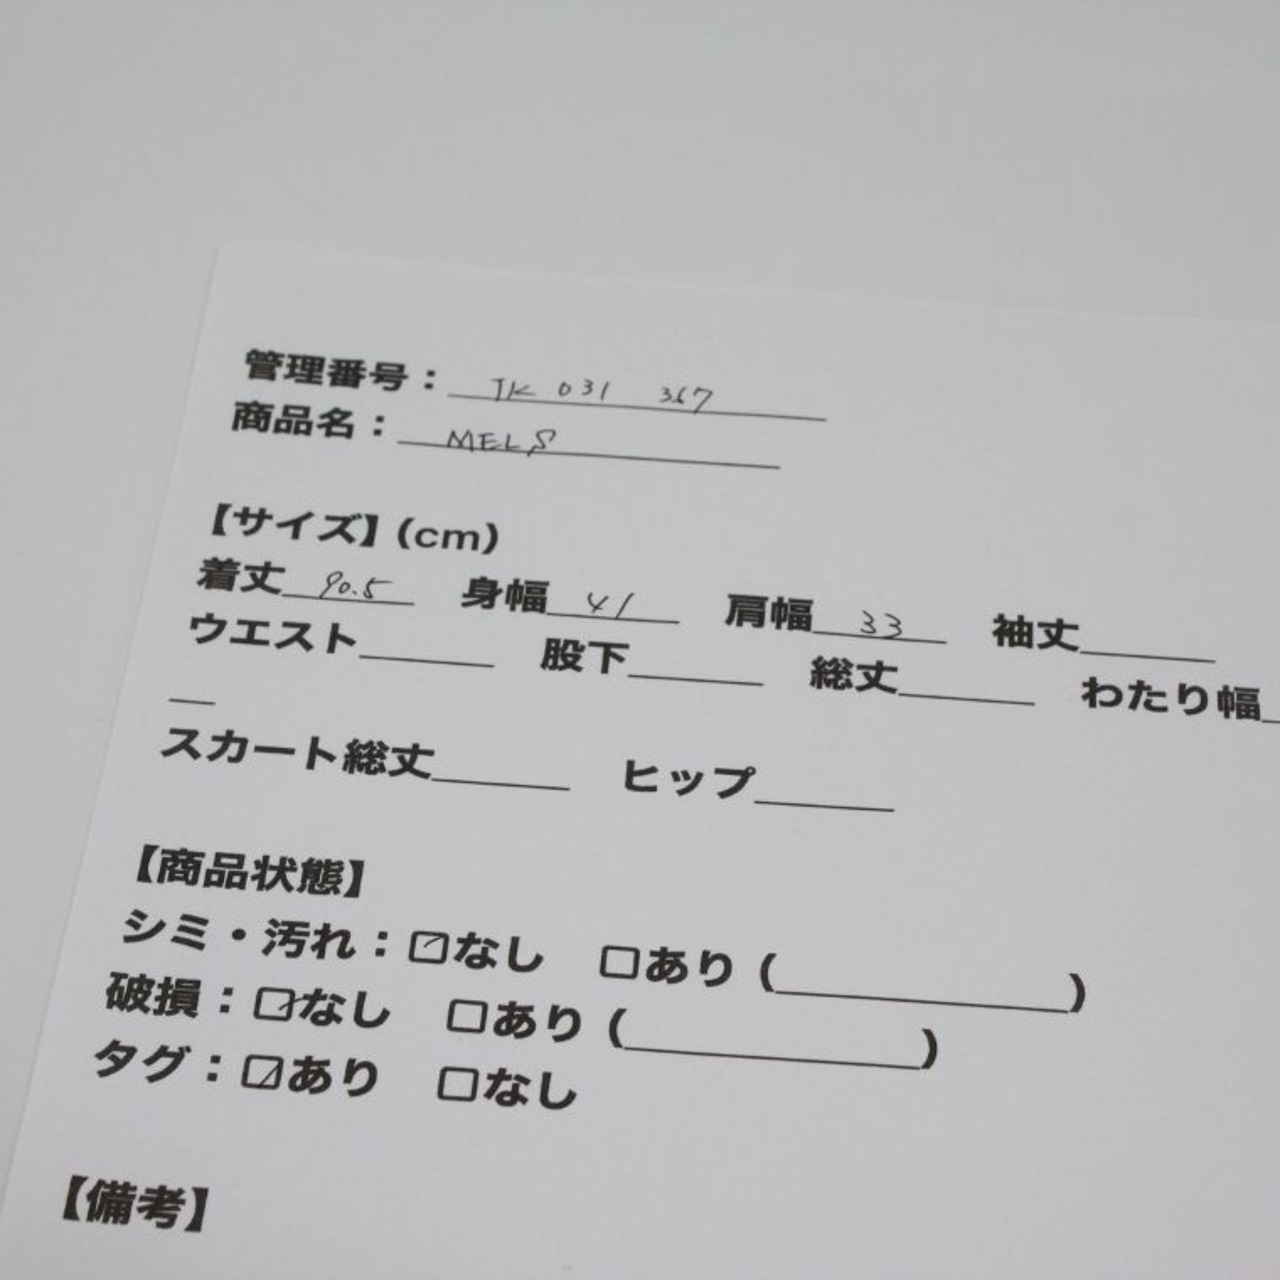 管理番号：TK 031 367
商品名：MELS
【サイズ】(cm)
着丈 90.5 身幅 41 肩幅 33 袖丈
ウエスト 股下 総丈 わたり幅
スカート総丈 ヒップ
【商品状態】
シミ・汚れ：☑なし □あり ( )
破損：☑なし □あり ( )
タグ：☑あり □なし
【備考】